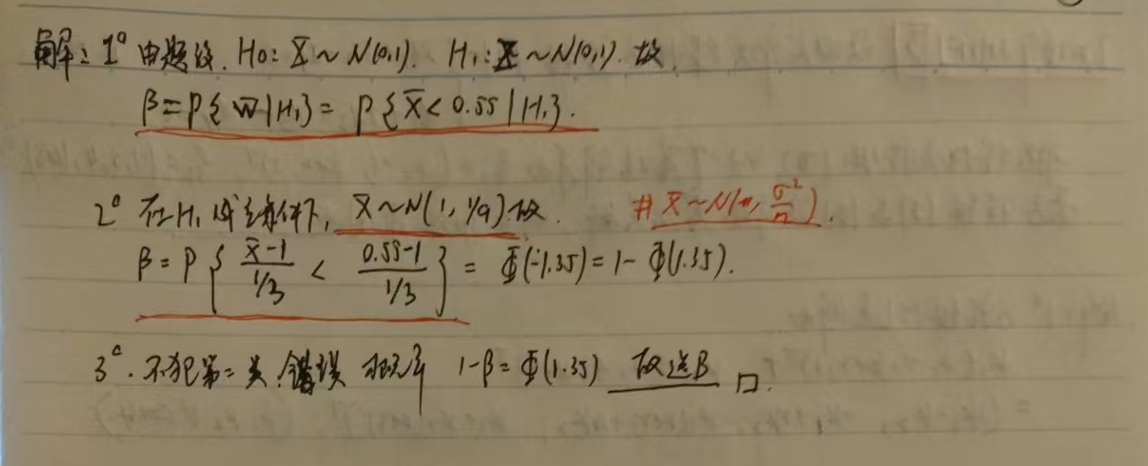 解: 1° 由题设. H0: X ~ N(0,1). H1: X ~ N(0,1). 故
β = P{W̄|H1} = P{X̄ < 0.55 | H1}.
2° 在H1成立条件下, X̄ ~ N(1, 1/9) 故. # X̄ ~ N(μ, σ²/n).
β = P{ (X̄-1)/(1/3) < (0.55-1)/(1/3) } = Φ(-1.35) = 1 - Φ(1.35).
3°. 不犯第二类错误概率 1-β = Φ(1.35) 故选B 口.